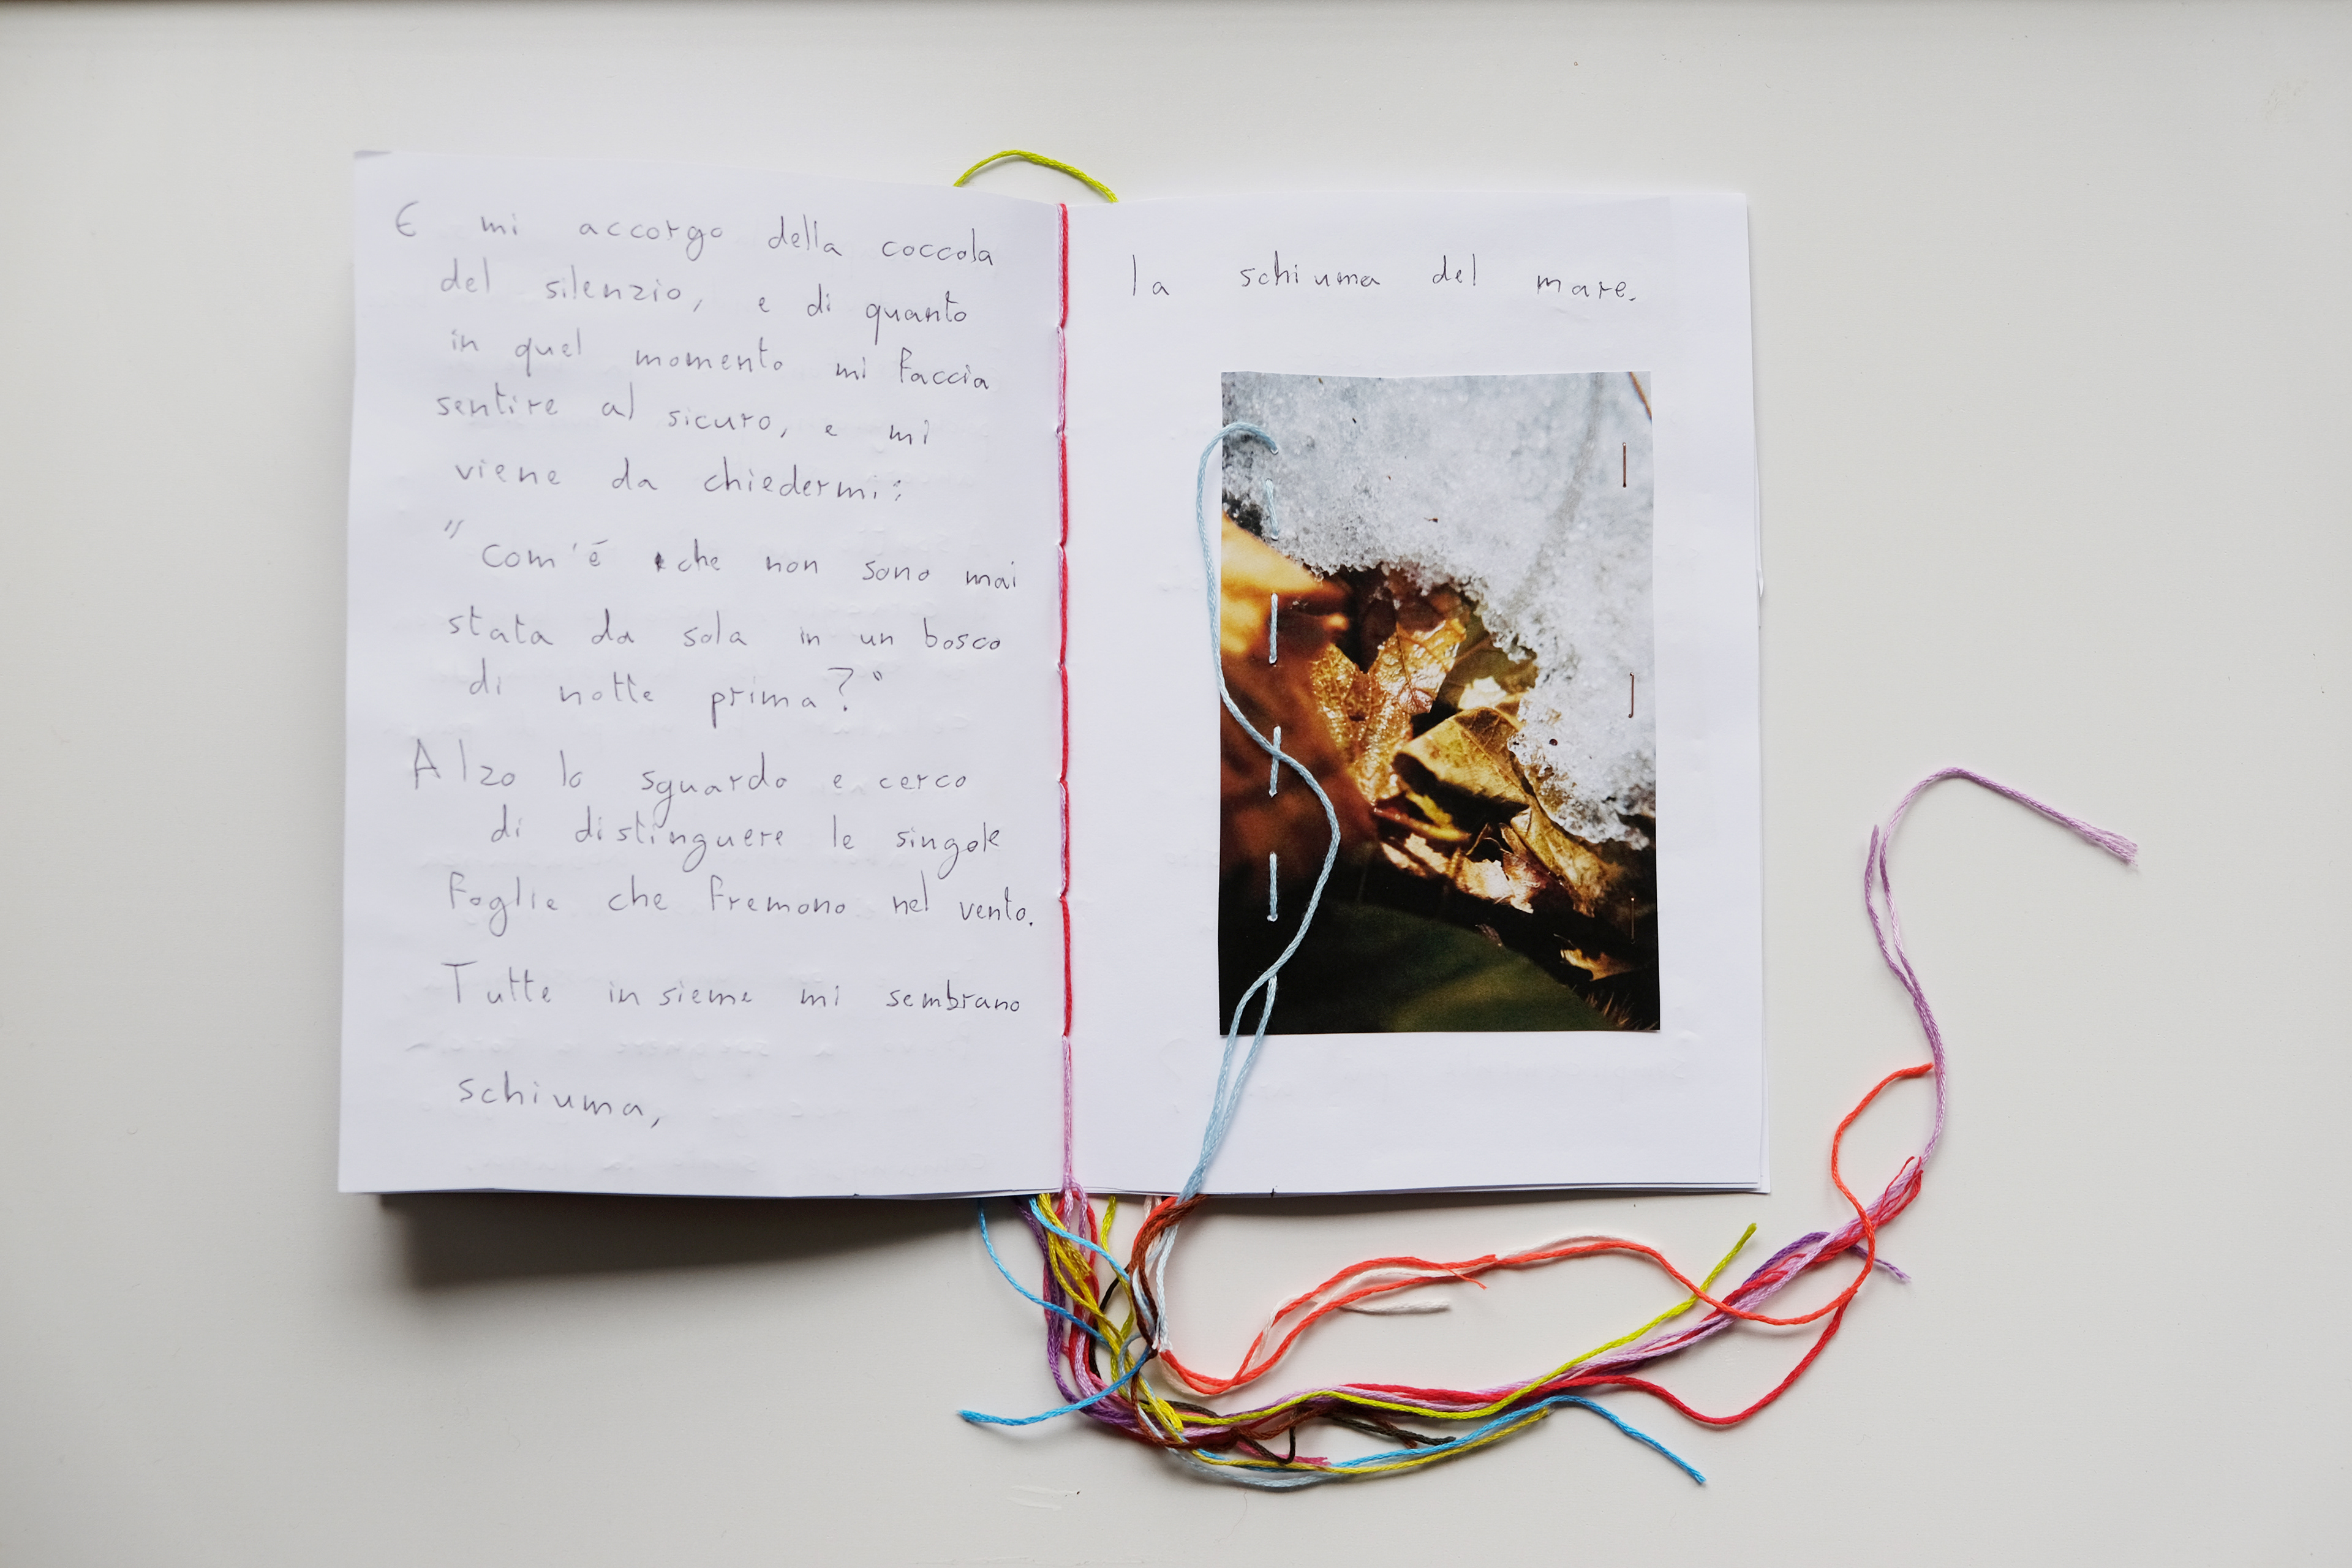 E mi accorgo della coccola
del silenzio, e di quanto
in quel momento mi faccia
sentire al sicuro, e mi
viene da chiedermi:
"Com'é che non sono mai
stata da sola in un bosco
di notte prima?"
Alzo lo sguardo e cerco
di distinguere le singole
foglie che fremono nel vento.
Tutte insieme mi sembrano
schiuma,
la schiuma del mare.